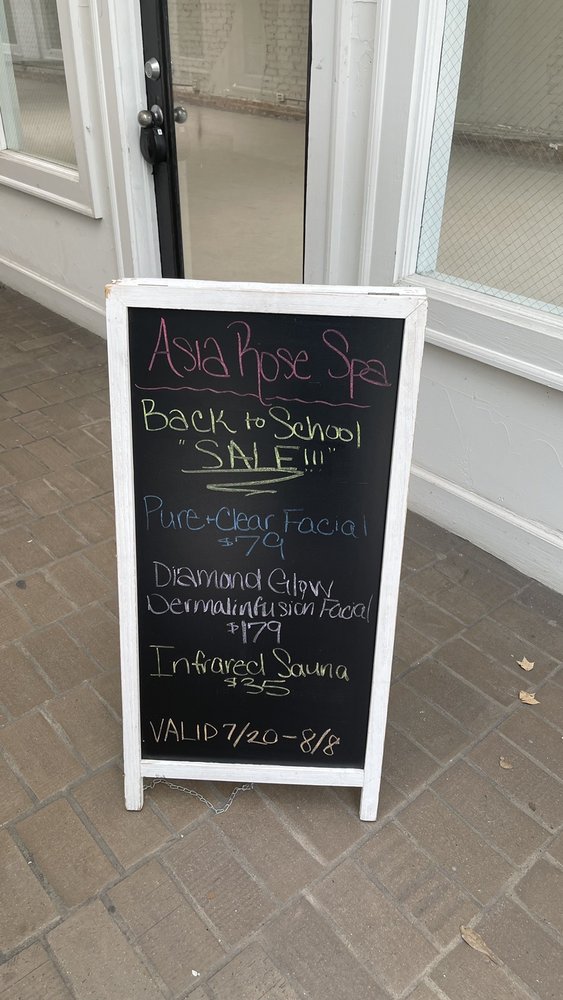 Asia Rose Spa
Back to School
"SALE!!!"
Pure + Clear Facial
$79
Diamond Glow
Dermalinfusion Facial
$179
Infrared Sauna
$35
VALID 7/20 - 8/8